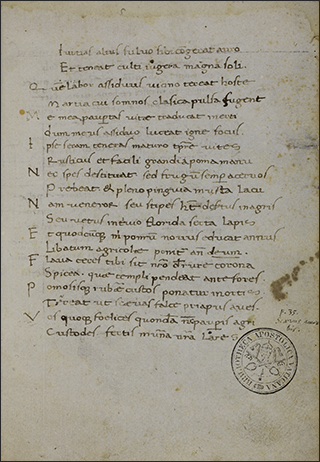 Diuitias alius fuluo sibi congerat auro
Et teneat culti iugera magna soli
Quem labor assiduus uicino terreat hoste
Martia cui somnos clasica pulsa fugent
Me mea paupertas uitae traducat inerti
dum meus assiduo luceat igne focus.
Ipse seram teneras maturo tpre uites
Rusticus et facili grandia poma manu
Nec spes destituat sed frugum semper aceruos
Prebeat & pleno pinguia musta lacu
Nam ueneror seu stipes habet desertus in agris
Seu uetus in triuio florida serta lapis
Et quodcunq mihi pomum nouus educat annus
Libatum agricolae ponitur an deum.
Flaua ceres tibi sit nro de rure corona
Spicea, que templi pendeat ante fores.
Pomosisq rubens custos ponatur in ortis
Terreat ut seua falce priapus aues.
Vos quoq foelices quondam nunc pauperis agri
Custodes fertis munera uestra Lares
f. 35.
BIBLIOTHECA APOSTOLICA VATICANA